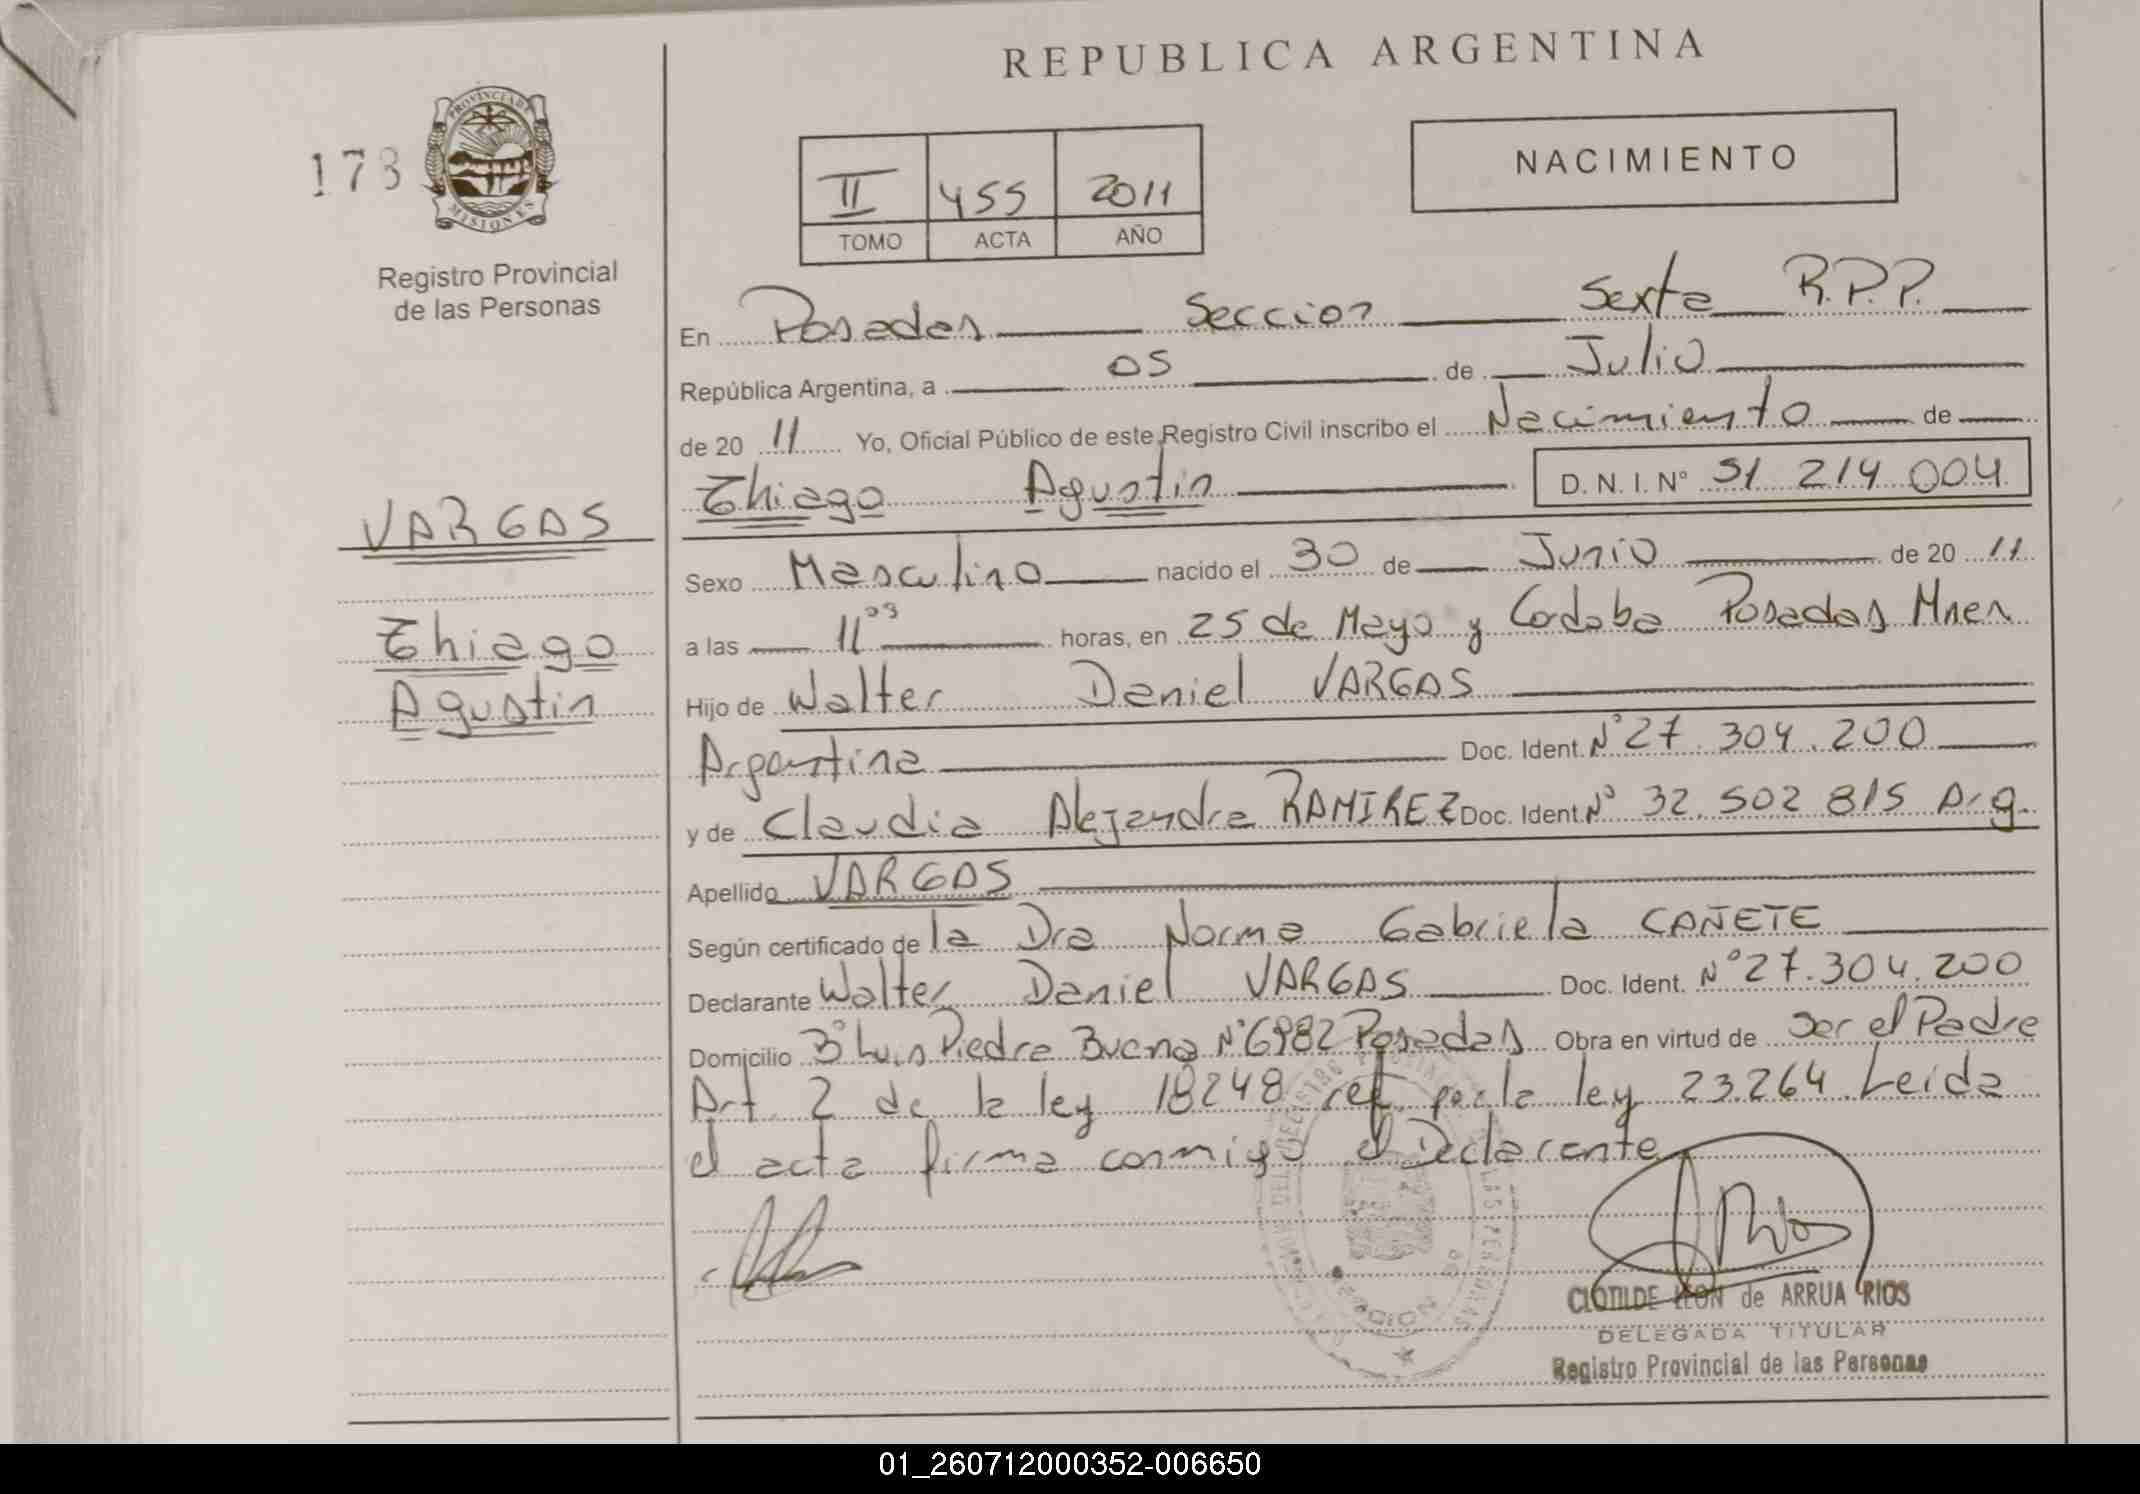 REPUBLICA ARGENTINA
173
PROVINCIA DE
MISIONES
Registro Provincial
de las Personas
II 455 2011
TOMO ACTA AÑO
NACIMIENTO
En Posadas Seccion Sexta R.P.P.
República Argentina, a 05 de Julio
de 20 11 Yo, Oficial Público de este Registro Civil inscribo el Nacimiento de
Thiago Agustin D. N. I. Nº 51 214 004
VARGAS
Thiago
Agustin
Sexo Masculino nacido el 30 de Junio de 20 11
a las 11 03 horas, en 25 de Mayo y Cordoba Posadas Mnes
Hijo de Walter Daniel VARGAS
Argentina Doc. Ident. Nº 27.304.200
y de Claudia Alejandra RAMIREZ Doc. Ident. Nº 32.502 815 Arg.
Apellido VARGAS
Según certificado de la Dra Norma Gabriela CAÑETE
Declarante Walter Daniel VARGAS Doc. Ident. Nº 27.304.200
Domicilio Bº Luis Piedra Buena Nº 6982 Posadas Obra en virtud de ser el Padre
Art. 2 de la ley 18248 ref. por la ley 23.264 Leida
el acta firma conmigo el Declarante
CLOTILDE LEON de ARRUA RIOS
DELEGADA TITULAR
Registro Provincial de las Personas
01_260712000352-006650